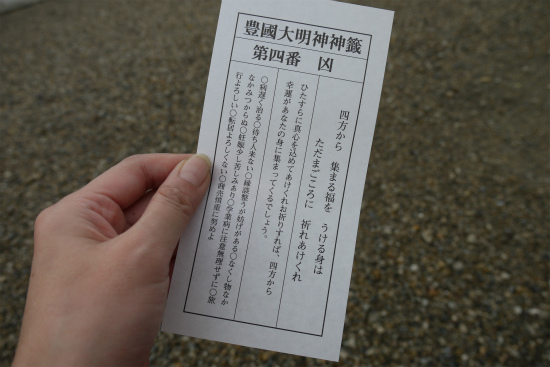 豊國大明神神籤
第四番　凶
四方から　集まる福を　うける身は
ただまごころに　祈れあけくれ
ひたすらに真心を込めてあけくれお祈りすれば、四方から
幸運があなたの身に集まってくるでしょう。
〇病遅く治る〇待ち人来ない〇縁談整うが妨げがある〇なくし物なか
なかみつからぬ〇妊娠少し苦しみあり〇学業病に注意無理せずに〇旅
行よろしい〇転居よろしくない〇商売慎重に努めよ